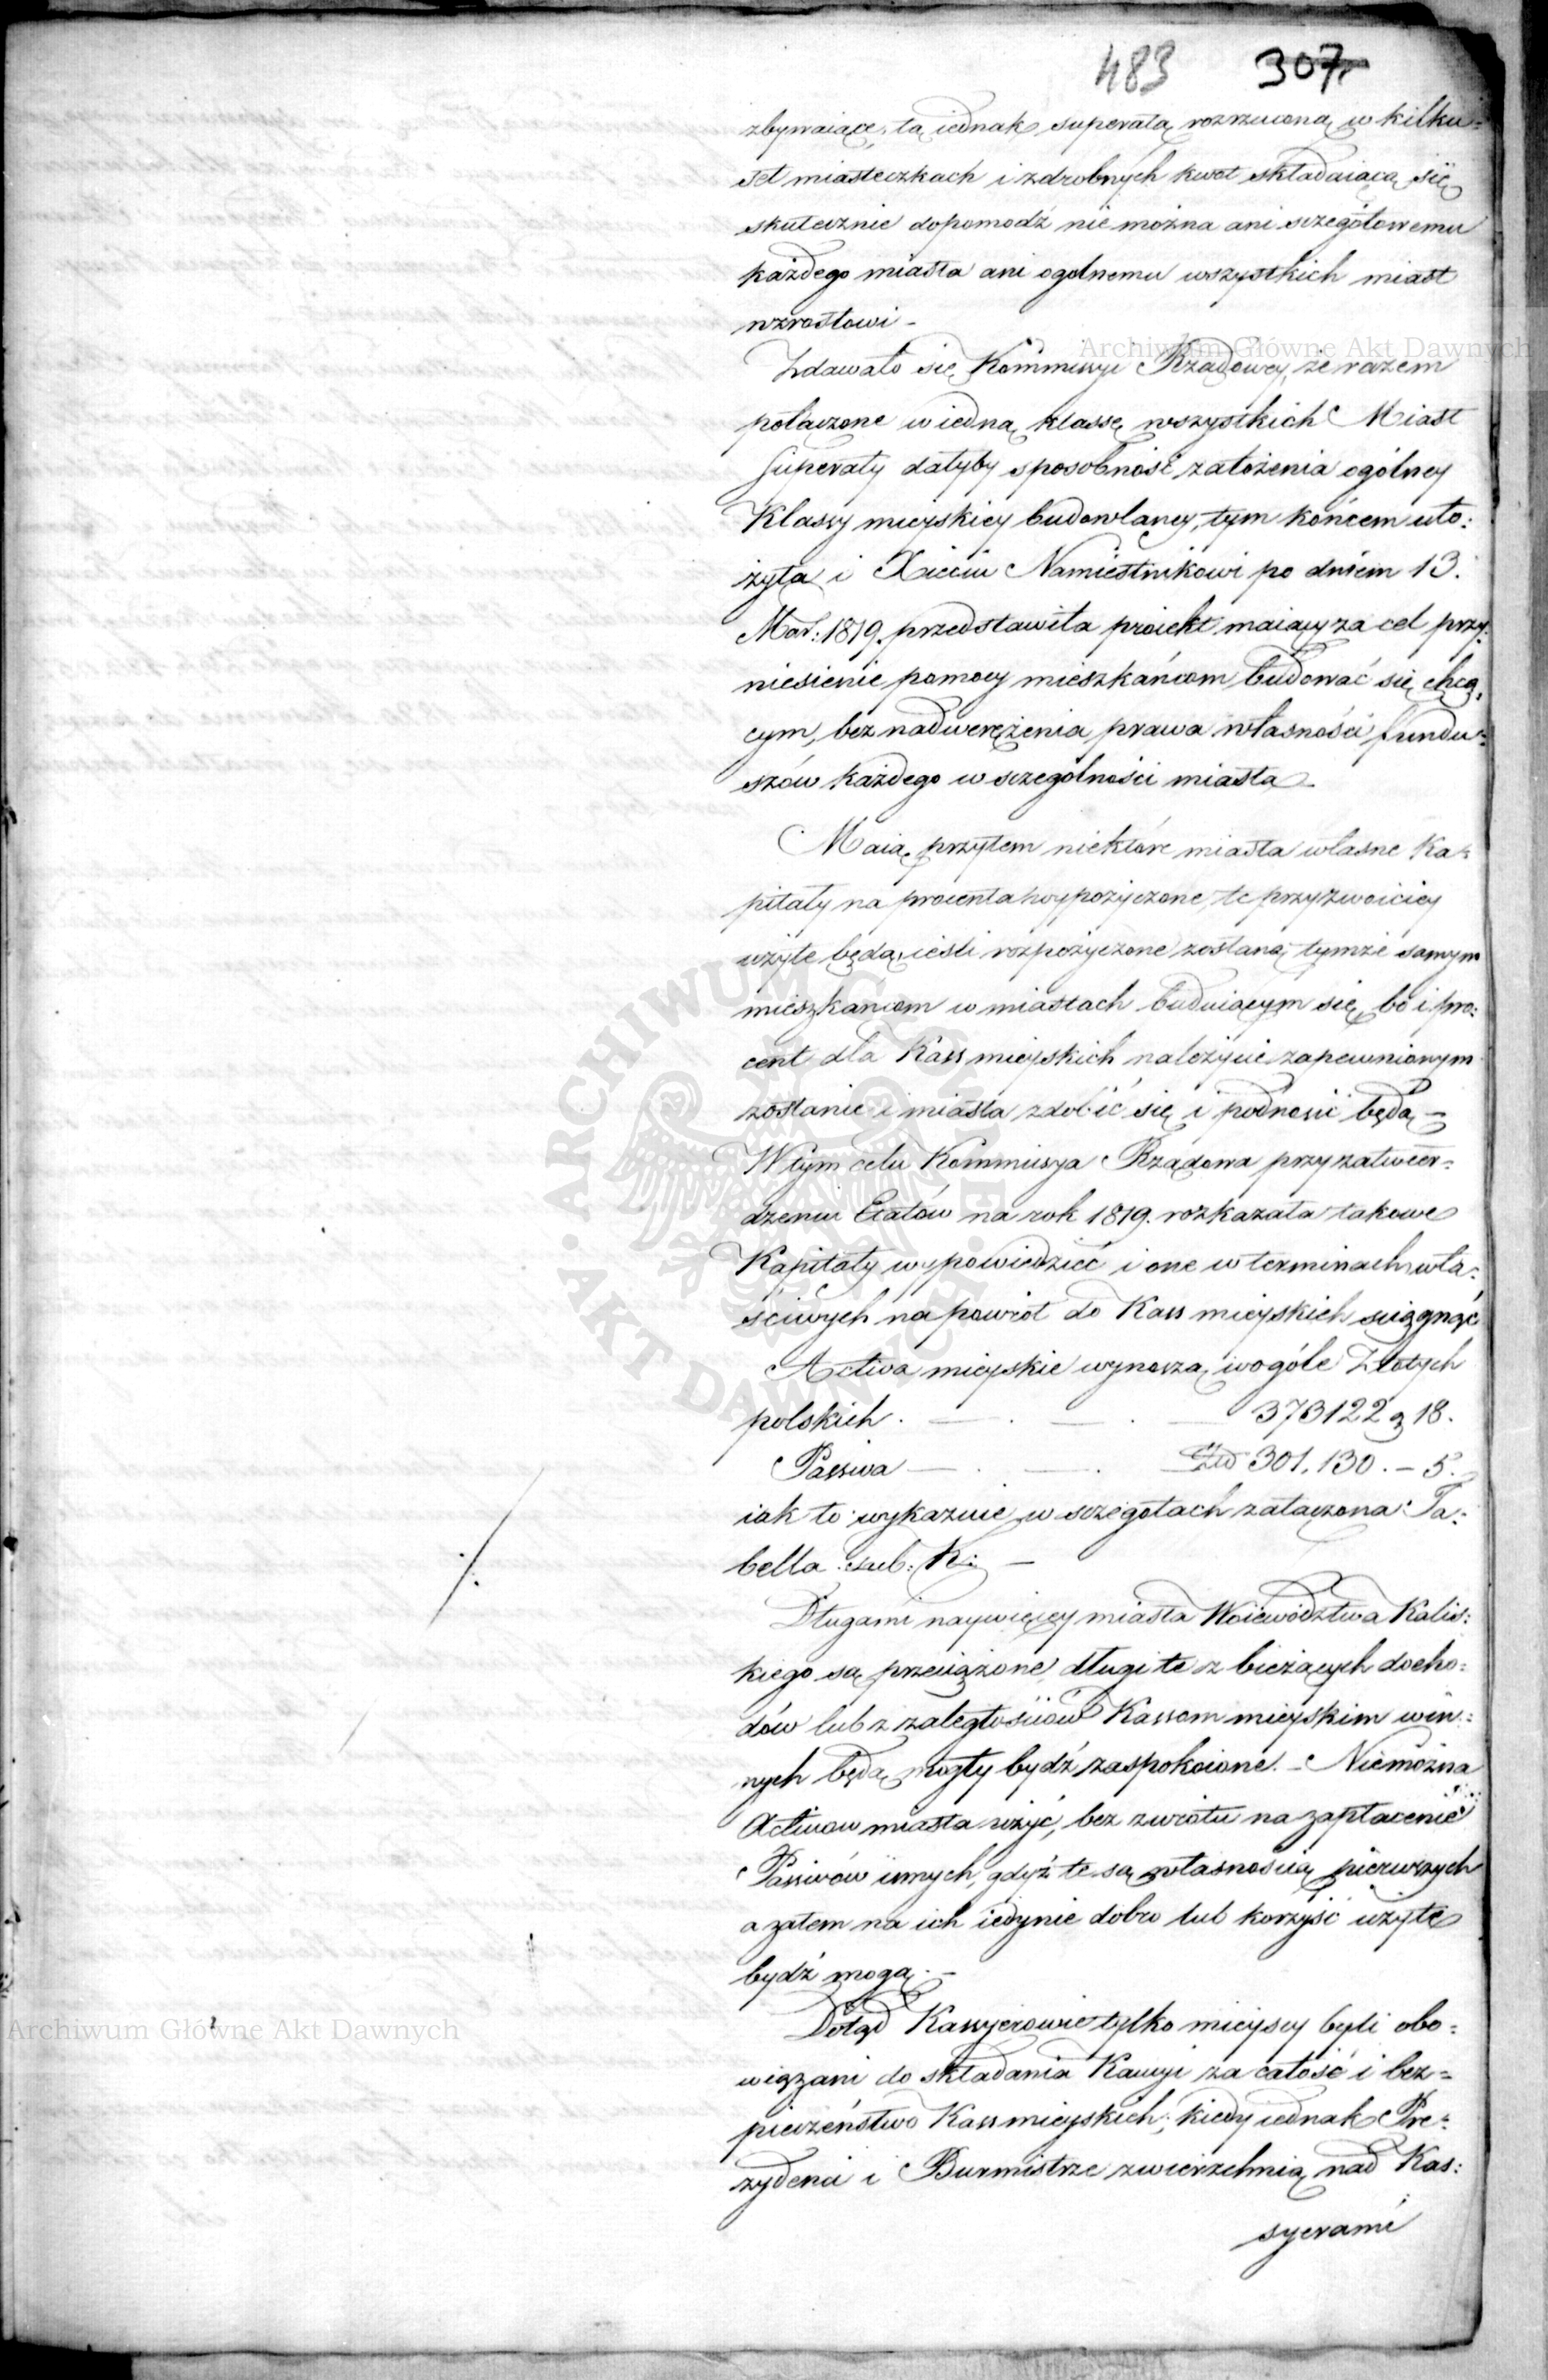 483 307
zbywaiące, tą iednak superatą rozrzuconą w kilku-
set miasteczkach i z drobnych kwot składaiącą się
skutecznie dopomodz nie można ani sczegółowemu
każdego miasta ani ogolnemu wszystkich miast
wzrostowi -
Zdawało się Kommissyi Rządowey, że razem
połączone w iedną klassę wszystkich Miast
Superaty dałyby sposobność założenia ogólney
Klassy mieyskiey budowlaney, tym końcem uło:
żyła i Xięciu Namiestnikowi po dniem 13.
Mar: 1819. przedstawiła proiekt maiący za cel przy:
niesienie pomocy mieszkańcom budować się chcą,
cym, bez nadwerężenia prawa własności fundu-
szów każdego w sczególności miasta -
Maią przytem niektóre miasta własne Ka-
pitały na procenta wypożyczone, te przyzwoiciey
użyte będą, ieśli rozpożyczone zostaną tymże samym
mieszkańcom w miastach buduiącym się, bo i pro:
cent dla Kass mieyskich należycie zapewnionym
zostanie i miasta zdobić się i podnosić będą -
W tym celu Kommissya Rządowa przy zatwier-
dzeniu Etatów na rok 1819. rozkazała takowe
Kapitały wypowiedzieć i one w terminach wła:
ściwych na powrót do Kass mieyskich sciągnąć
Activa mieyskie wynoszą w ogóle Złotych
polskich . — . — . — 373122 g 18.
Passiva — . — . 301,130. - 5.
iak to wykazuie w sczegółach załączona Ta:
bella sub: K: —
Długami naywięcey miasta Woiewództwa Kalis:
kiego są przeciążone, długi te z bieżących docho:
dów lub z zaległościów Kassom mieyskim win:
nych będą mogły bydź zaspokoione. - Niemożna
Activow miasta użyć, bez zwrotu na zapłacenie
Passivów innych, gdyż te są własnością pierwszych
a zatem na ich iedynie dobro lub korzyść użyte
bydź mogą. -
Dotąd Kassyerowie tylko mieyscy byli obo:
wiązani do składania Kaucyi za całość i bez-
pieczeństwo Kass mieyskich; kiedy iednak Pre-
zydenci i Burmistrze zwierzchnią nad Kas:
syerami
Archiwum Główne Akt Dawnych
ARCHIWUM GŁÓWNE · AKT DAWNYCH ·
Archiwum Główne Akt Dawnych